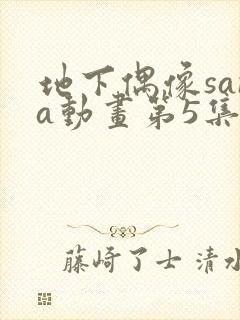 地下偶像sa
a動畫第5集
藤崎了士 清水